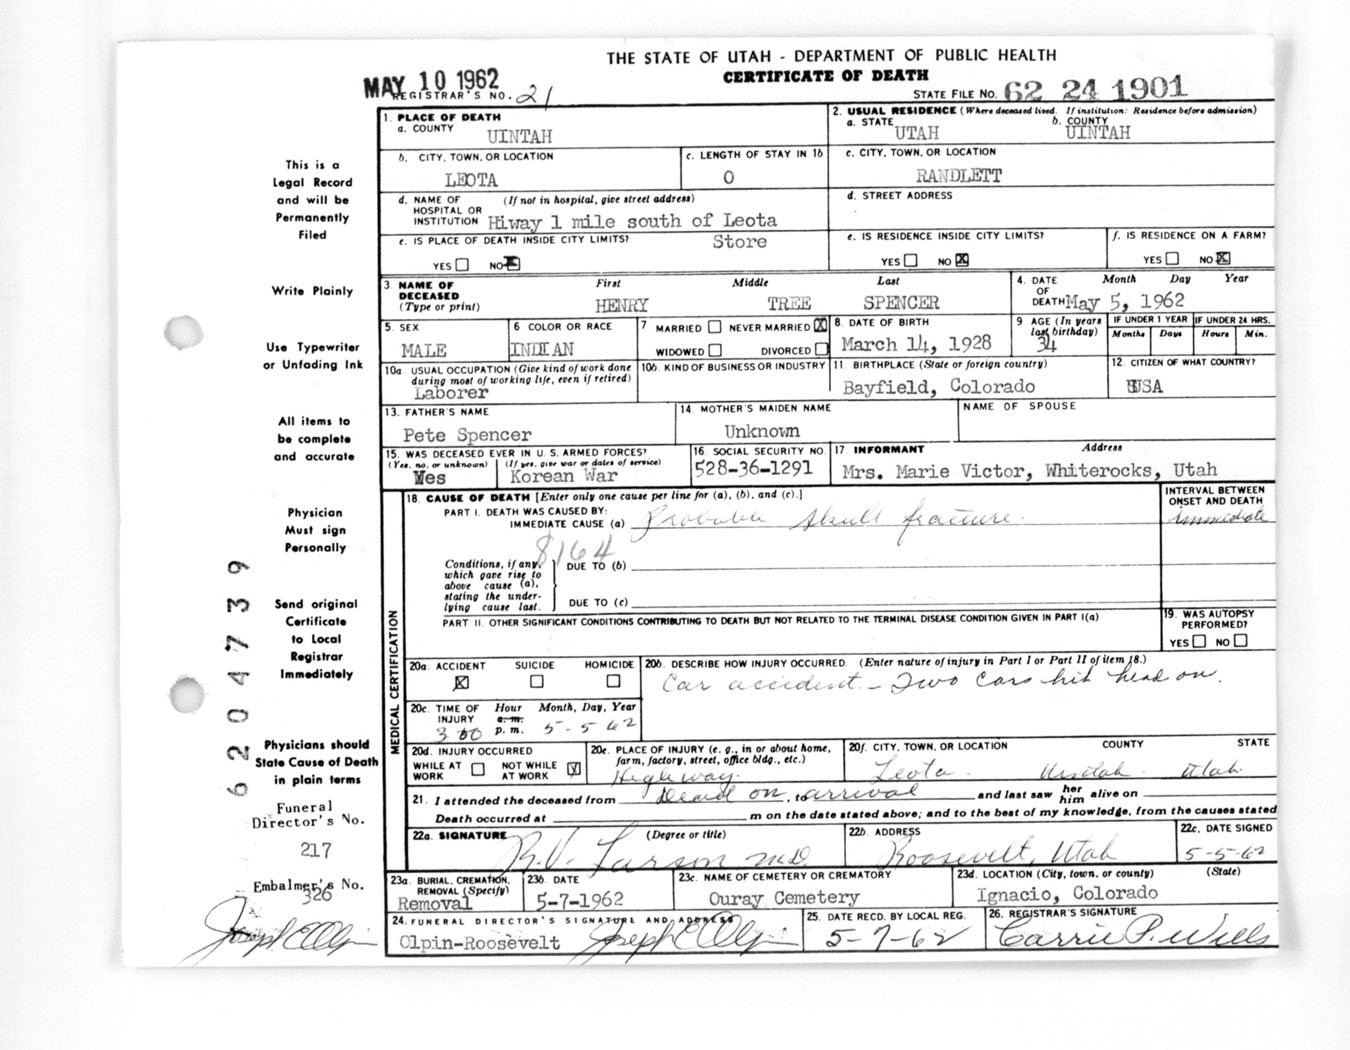 THE STATE OF UTAH - DEPARTMENT OF PUBLIC HEALTH
CERTIFICATE OF DEATH
MAY 10 1962
REGISTRAR'S NO. 21
STATE FILE NO. 62 24 1901
This is a
Legal Record
and will be
Permanently
Filed
Write Plainly
Use Typewriter
or Unfading Ink
All items to
be complete
and accurate
Physician
Must sign
Personally
Send original
Certificate
to Local
Registrar
Immediately
Physicians should
State Cause of Death
in plain terms
Funeral
Director's No.
217
Embalmer's No.
326
Joseph E Olpin
6204739
1. PLACE OF DEATH
a. COUNTY UINTAH
2. USUAL RESIDENCE (Where deceased lived. If institution: Residence before admission)
a. STATE UTAH b. COUNTY UINTAH
b. CITY, TOWN, OR LOCATION LEOTA
c. LENGTH OF STAY IN 1b 0
c. CITY, TOWN, OR LOCATION RANDLETT
d. NAME OF HOSPITAL OR INSTITUTION (If not in hospital, give street address)
Hiway 1 mile south of Leota
Store
d. STREET ADDRESS
e. IS PLACE OF DEATH INSIDE CITY LIMITS?
YES NO X
e. IS RESIDENCE INSIDE CITY LIMITS?
YES NO X
f. IS RESIDENCE ON A FARM?
YES NO X
3. NAME OF DECEASED (Type or print) First Middle Last
HENRY TREE SPENCER
4. DATE OF DEATH Month Day Year
May 5, 1962
5. SEX MALE
6 COLOR OR RACE INDIAN
7 MARRIED NEVER MARRIED X
WIDOWED DIVORCED
8. DATE OF BIRTH March 14, 1928
9 AGE (In years last birthday) 34
IF UNDER 1 YEAR Months Days
IF UNDER 24 HRS. Hours Min.
10a. USUAL OCCUPATION (Give kind of work done during most of working life, even if retired)
Laborer
10b. KIND OF BUSINESS OR INDUSTRY
11. BIRTHPLACE (State or foreign country)
Bayfield, Colorado
12. CITIZEN OF WHAT COUNTRY?
USA
13. FATHER'S NAME
Pete Spencer
14. MOTHER'S MAIDEN NAME
Unknown
NAME OF SPOUSE
15. WAS DECEASED EVER IN U. S. ARMED FORCES?
(Yes, no, or unknown) (If yes, give war or dates of service)
Yes Korean War
16. SOCIAL SECURITY NO.
528-36-1291
17. INFORMANT Address
Mrs. Marie Victor, Whiterocks, Utah
MEDICAL CERTIFICATION
18. CAUSE OF DEATH [Enter only one cause per line for (a), (b), and (c).]
INTERVAL BETWEEN ONSET AND DEATH
PART I. DEATH WAS CAUSED BY:
IMMEDIATE CAUSE (a) Probable skull fracture. immediate
8164
Conditions, if any, which gave rise to above cause (a), stating the underlying cause last.
DUE TO (b)
DUE TO (c)
PART II. OTHER SIGNIFICANT CONDITIONS CONTRIBUTING TO DEATH BUT NOT RELATED TO THE TERMINAL DISEASE CONDITION GIVEN IN PART I(a)
19. WAS AUTOPSY PERFORMED?
YES NO
20a. ACCIDENT X SUICIDE HOMICIDE
20b. DESCRIBE HOW INJURY OCCURRED. (Enter nature of injury in Part I or Part II of item 18.)
Car accident - Two cars hit head on.
20c. TIME OF INJURY Hour a. m. p. m. Month, Day, Year
3 00 5-5-62
20d. INJURY OCCURRED
WHILE AT WORK NOT WHILE AT WORK X
20e. PLACE OF INJURY (e. g., in or about home, farm, factory, street, office bldg., etc.)
Highway.
20f. CITY, TOWN, OR LOCATION COUNTY STATE
Leota. Uintah. Utah.
21. I attended the deceased from Dead on, to arrival and last saw her him alive on
Death occurred at m on the date stated above; and to the best of my knowledge, from the causes stated
22a. SIGNATURE (Degree or title)
R.V. Larson M.D.
22b. ADDRESS
Roosevelt, Utah
22c. DATE SIGNED
5-5-62
23a. BURIAL, CREMATION, REMOVAL (Specify)
Removal
23b. DATE
5-7-1962
23c. NAME OF CEMETERY OR CREMATORY
Ouray Cemetery
23d. LOCATION (City, town, or county) (State)
Ignacio, Colorado
24. FUNERAL DIRECTOR'S SIGNATURE AND ADDRESS
Olpin-Roosevelt Joseph E Olpin
25. DATE RECD. BY LOCAL REG.
5-7-62
26. REGISTRAR'S SIGNATURE
Carrie P. Wills